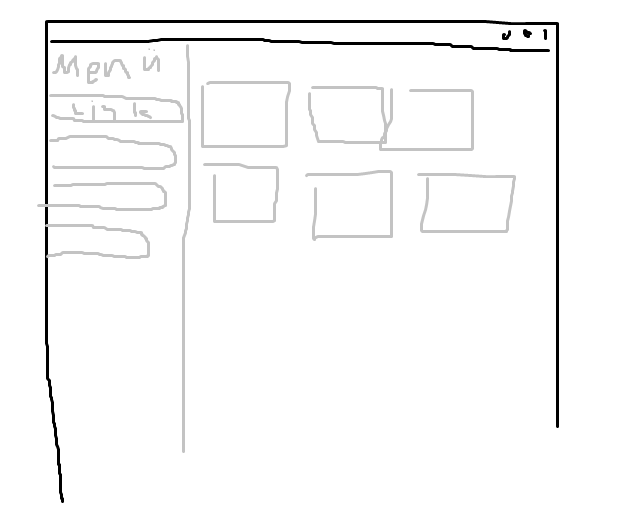 Menü
Link